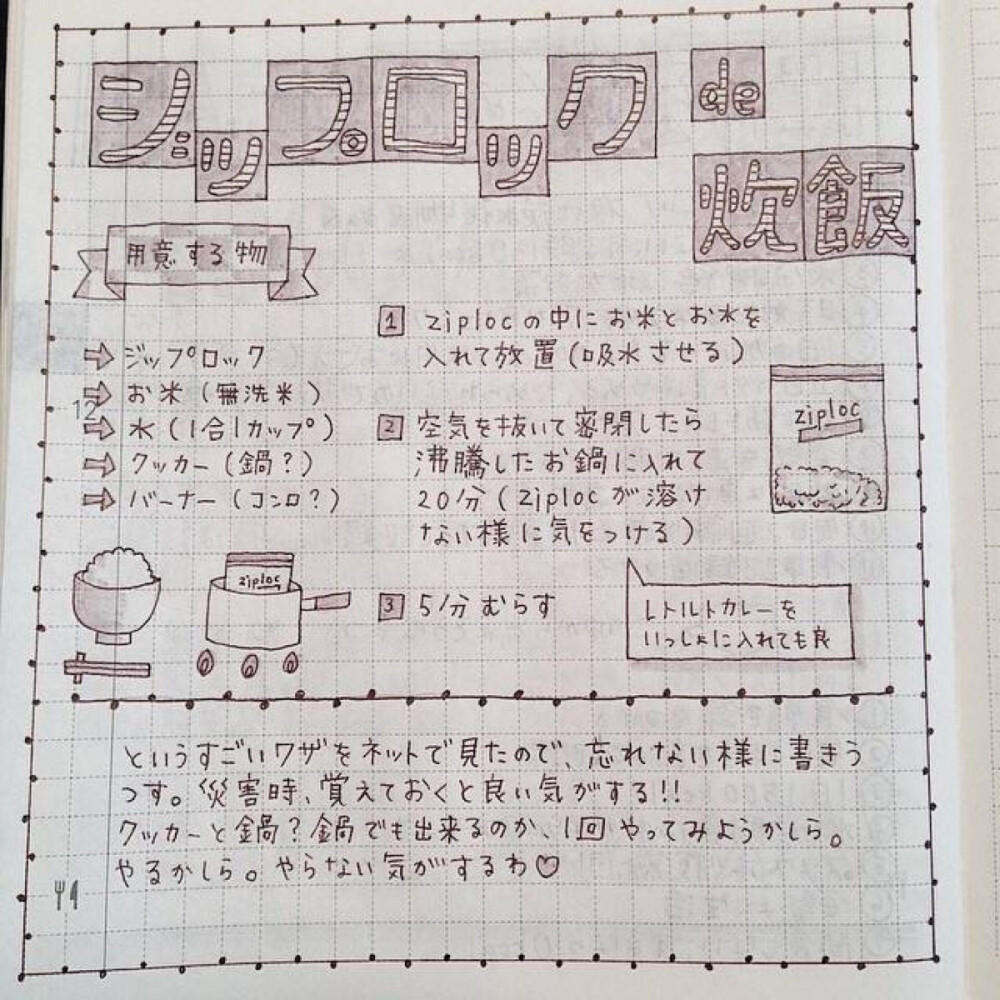 ジップロック de
炊飯
用意する物
⇨ ジップロック
⇨ お米(無洗米)
⇨ 水(1合1カップ)
⇨ クッカー(鍋?)
⇨ バーナー(コンロ?)
1 ziplocの中にお米とお水を
入れて放置(吸水させる)
2 空気を抜いて密閉したら
沸騰したお鍋に入れて
20分(ziplocが溶け
ない様に気をつける)
3 5分むらす
ziploc
ziploc
レトルトカレーを
いっしょに入れても良
12
というすごいワザをネットで見たので、忘れない様に書きう
つす。災害時、覚えておくと良い気がする!!
クッカーと鍋?鍋でも出来るのか、1回やってみようかしら。
やるかしら。やらない気がするわ♡